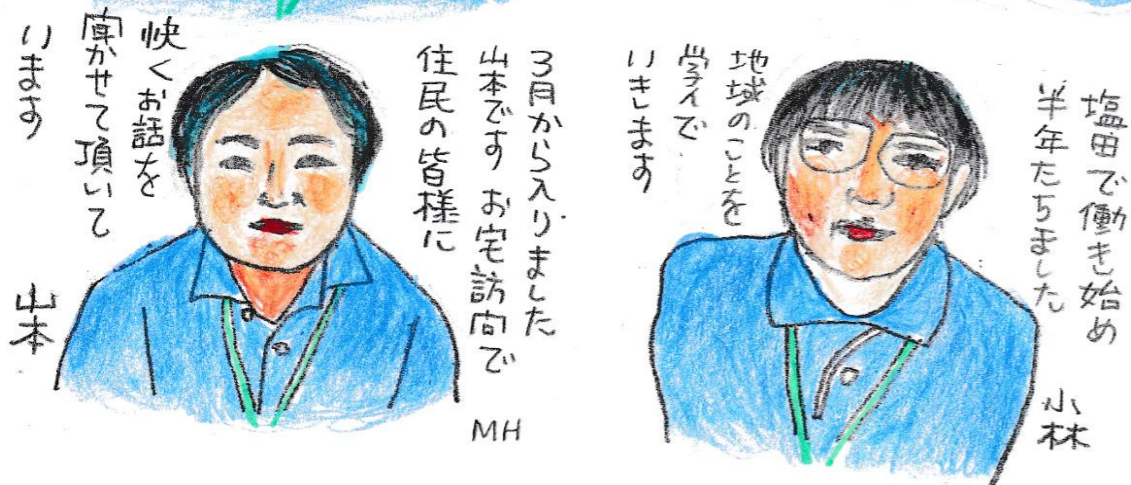 塩田で働き始め
半年たちました
地域のことを
学んで
いきます
小林
3月から入りました
山本です お宅訪问で
住民の皆様に
快くお話を
聞かせて頂いて
います
山本
MH